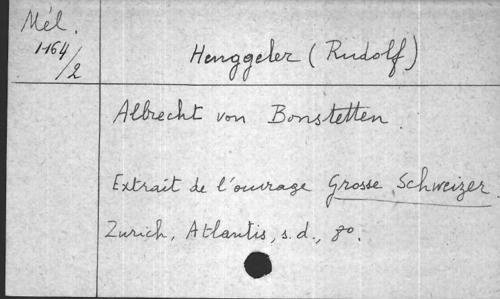 Mél.
1164
/2
Henggeler (Rudolf)
Albrecht von Bonstetten.
Extrait de l'ouvrage Grosse Schweizer.
Zurich, Atlantis, s.d., 8o.